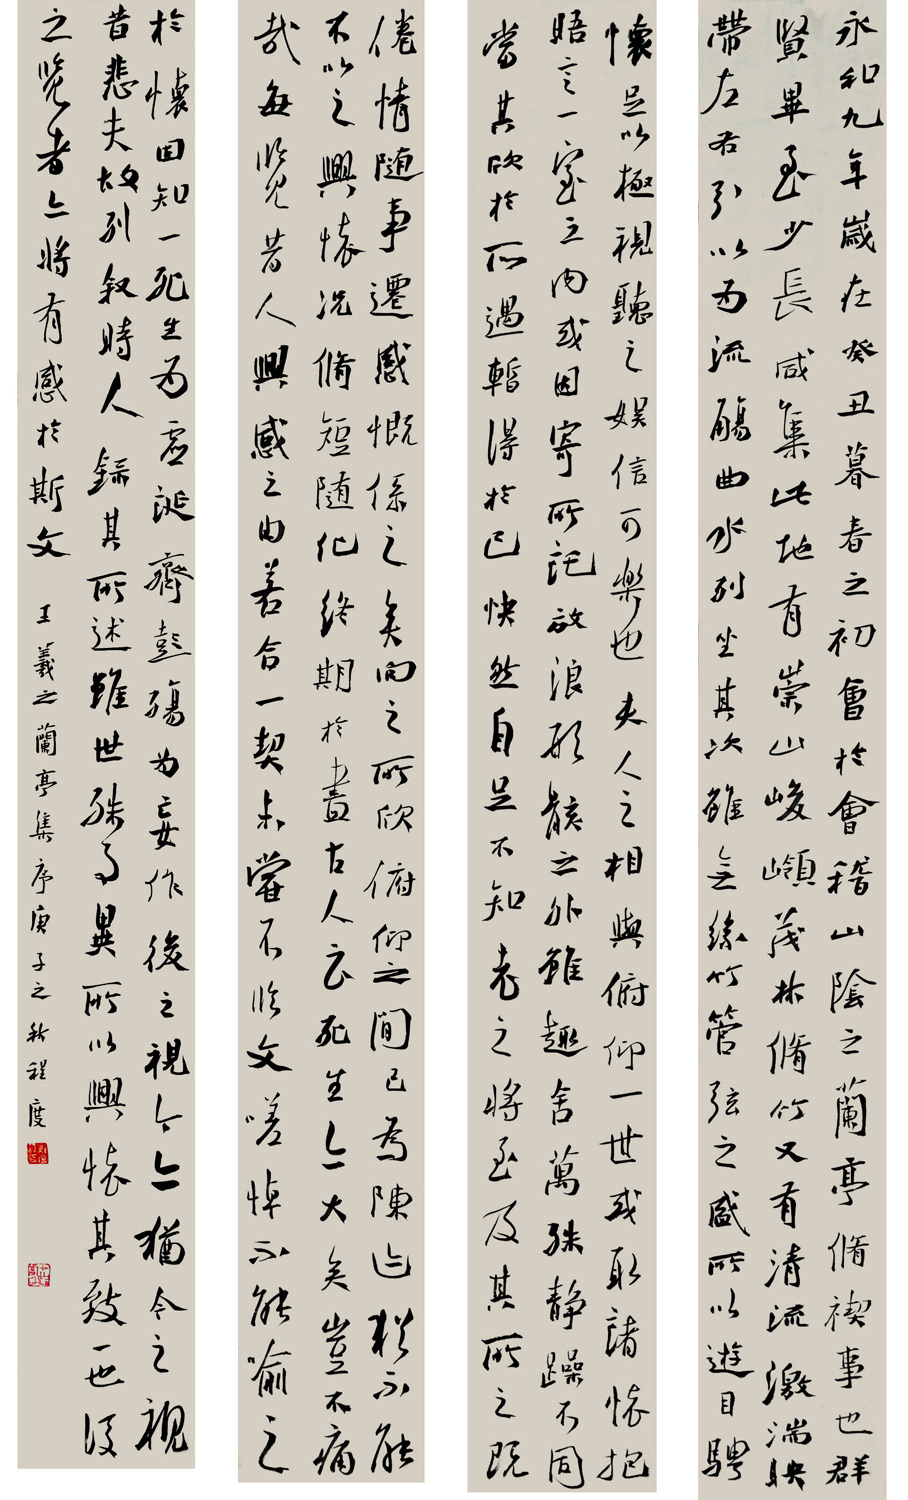 永和九年歲在癸丑暮春之初會於會稽山陰之蘭亭脩禊事也群
賢畢至少長咸集此地有崇山峻嶺茂林脩竹又有清流激湍映
帶左右引以為流觴曲水列坐其次雖無絲竹管弦之盛所以遊目騁
懷足以極視聽之娛信可樂也夫人之相與俯仰一世或取諸懷抱
晤言一室之內或因寄所託放浪形骸之外雖趣舍萬殊静躁不同
當其欣於所遇暫得於己快然自足不知老之將至及其所之既
倦情随事遷感慨係之矣向之所欣俯仰之間已為陳迹猶不能
不以之興懷況脩短随化終期於盡古人云死生亦大矣豈不痛
哉每覽昔人興感之由若合一契未嘗不臨文嗟悼不能喻之
於懷固知一死生為虛誕齊彭殤為妄作後之視今亦猶今之視
昔悲夫故列叙時人錄其所述雖世殊事異所以興懷其致一也後
之覽者亦將有感於斯文 王羲之蘭亭集序庚子之秋程度